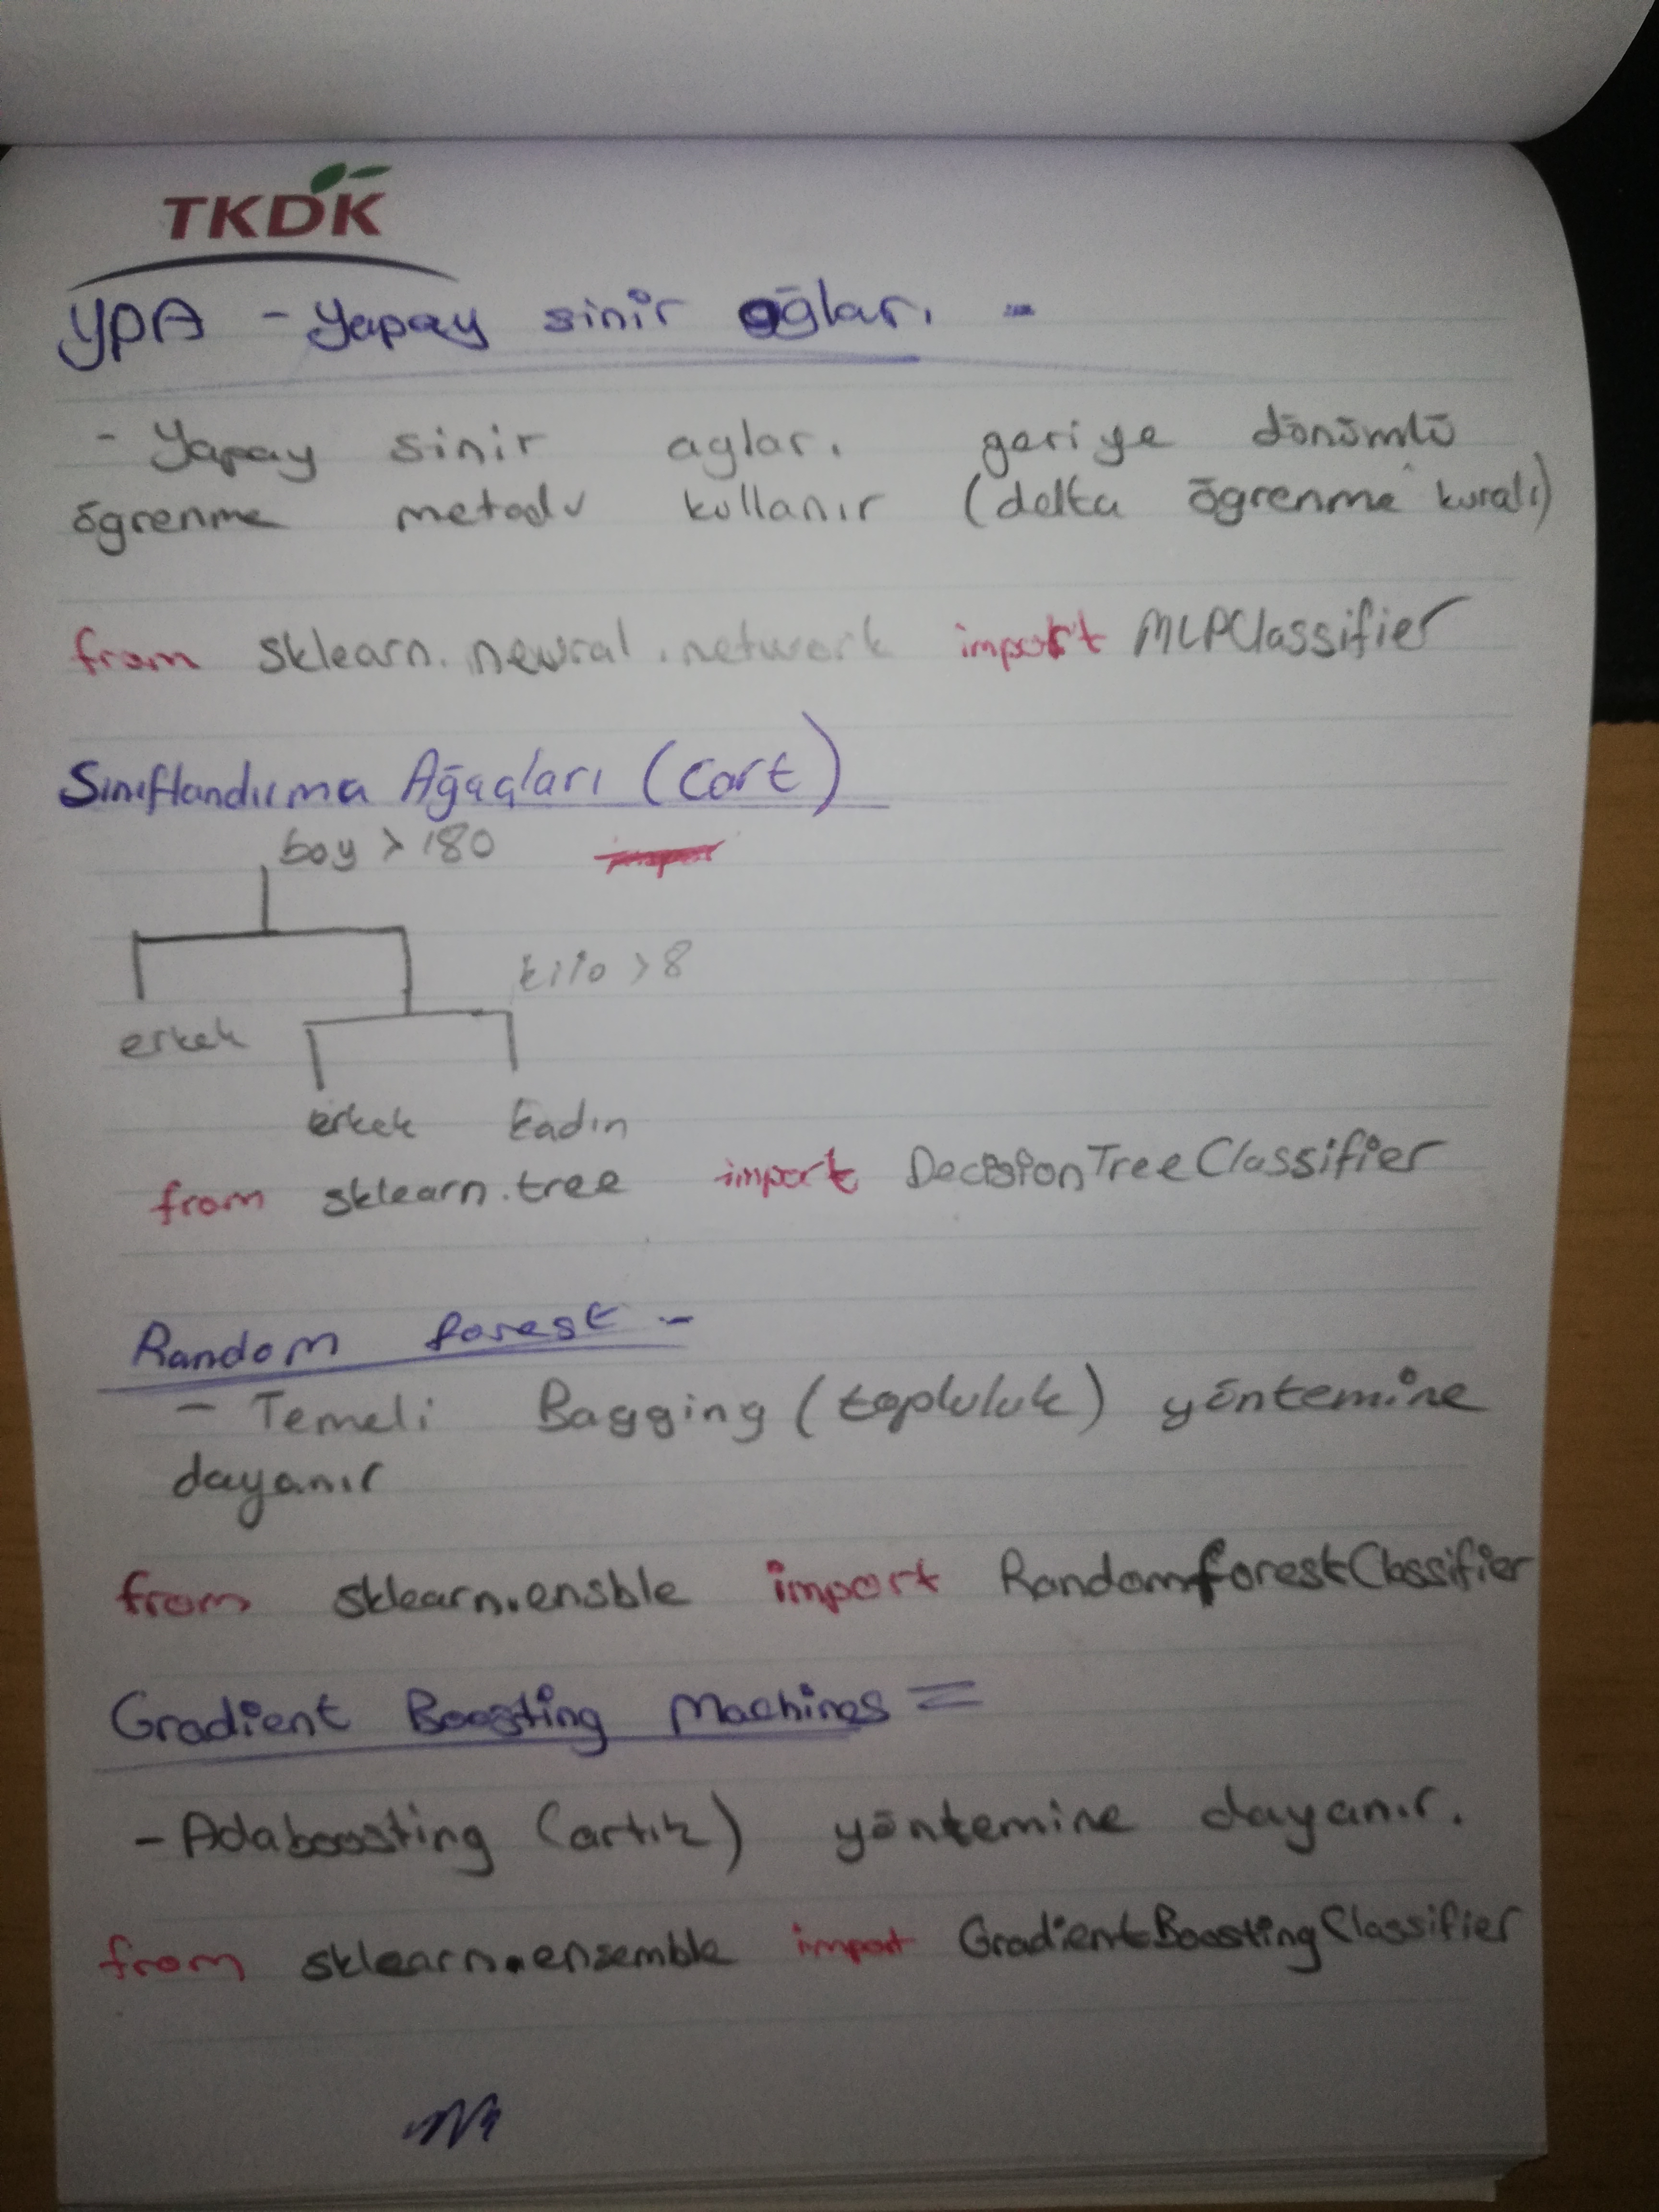 TKDK
YPA - Yapay sinir ağları -
- Yapay sinir agları geriye dönümlü
ögrenme metodu kullanır (delta ögrenme kuralı)
from sklearn.neural.network import MLPClassifier
Sınıflandırma Ağaçları (Cart)
boy > 180
kilo > 8
erkek
erkek kadın
from sklearn.tree import DecisionTreeClassifier
Random forest -
- Temeli Bagging (topluluk) yöntemine
dayanır
from sklearn.ensble import RandomforestClassifier
Gradient Boosting Machines =
- Adaboosting (artık) yöntemine dayanır.
from sklearn.ensemble import GradientBoostingClassifier